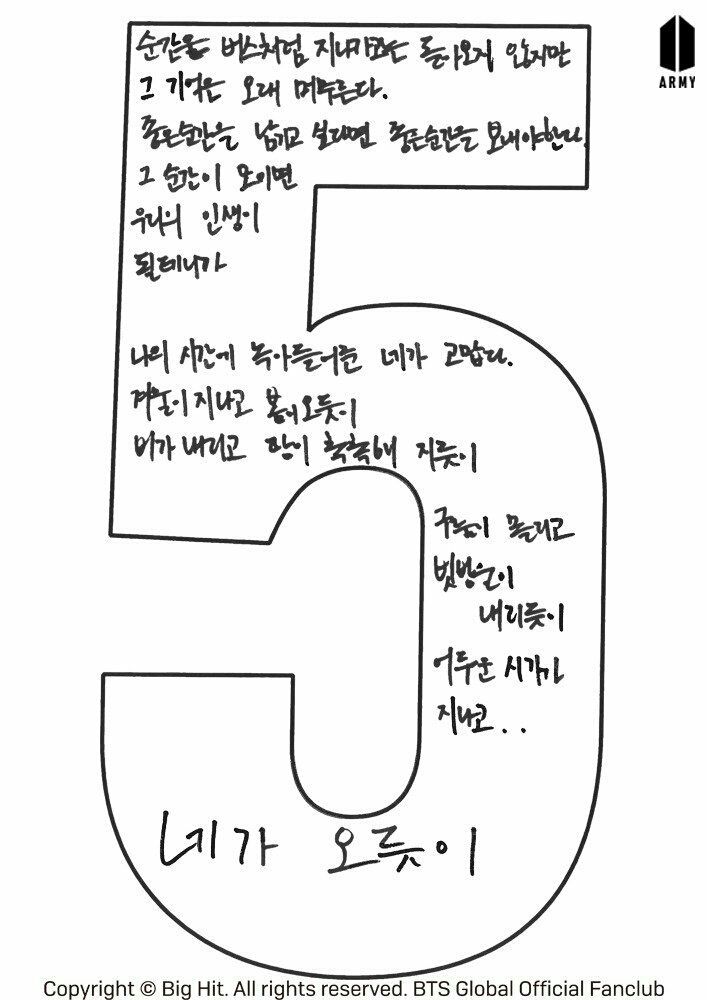 순간은 버스처럼 지나가고는 돌아오지 않지만
그 기억은 오래 머무른다.
좋은순간을 남기고 싶다면 좋은순간을 보내야한다.
그 순간이 모이면
우리의 인생이
될테니까
나의 시간에 녹아들어준 네가 고맙다.
겨울이 지나고 봄이오듯이
비가 내리고 땅이 축축해 지듯이
구름이 몰리고
빗방울이
내리듯이
어두운 시간이
지나고..
네가 오듯이
ARMY
Copyright © Big Hit. All rights reserved. BTS Global Official Fanclub